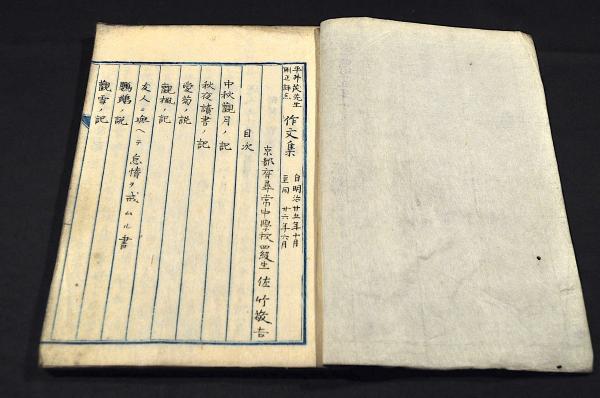 平井茂先生
刪正評点
作文集
自明治廿五年十月
至同 廿六年六月
京都府尋常中學校四級生 佐竹敬吉
目次
中秋觀月ノ記
秋夜讀書ノ記
愛菊ノ説
觀楓ノ記
友人ニ與ヘテ怠惰ヲ戒ムル書
鸚鵡ノ説
觀雪ノ記